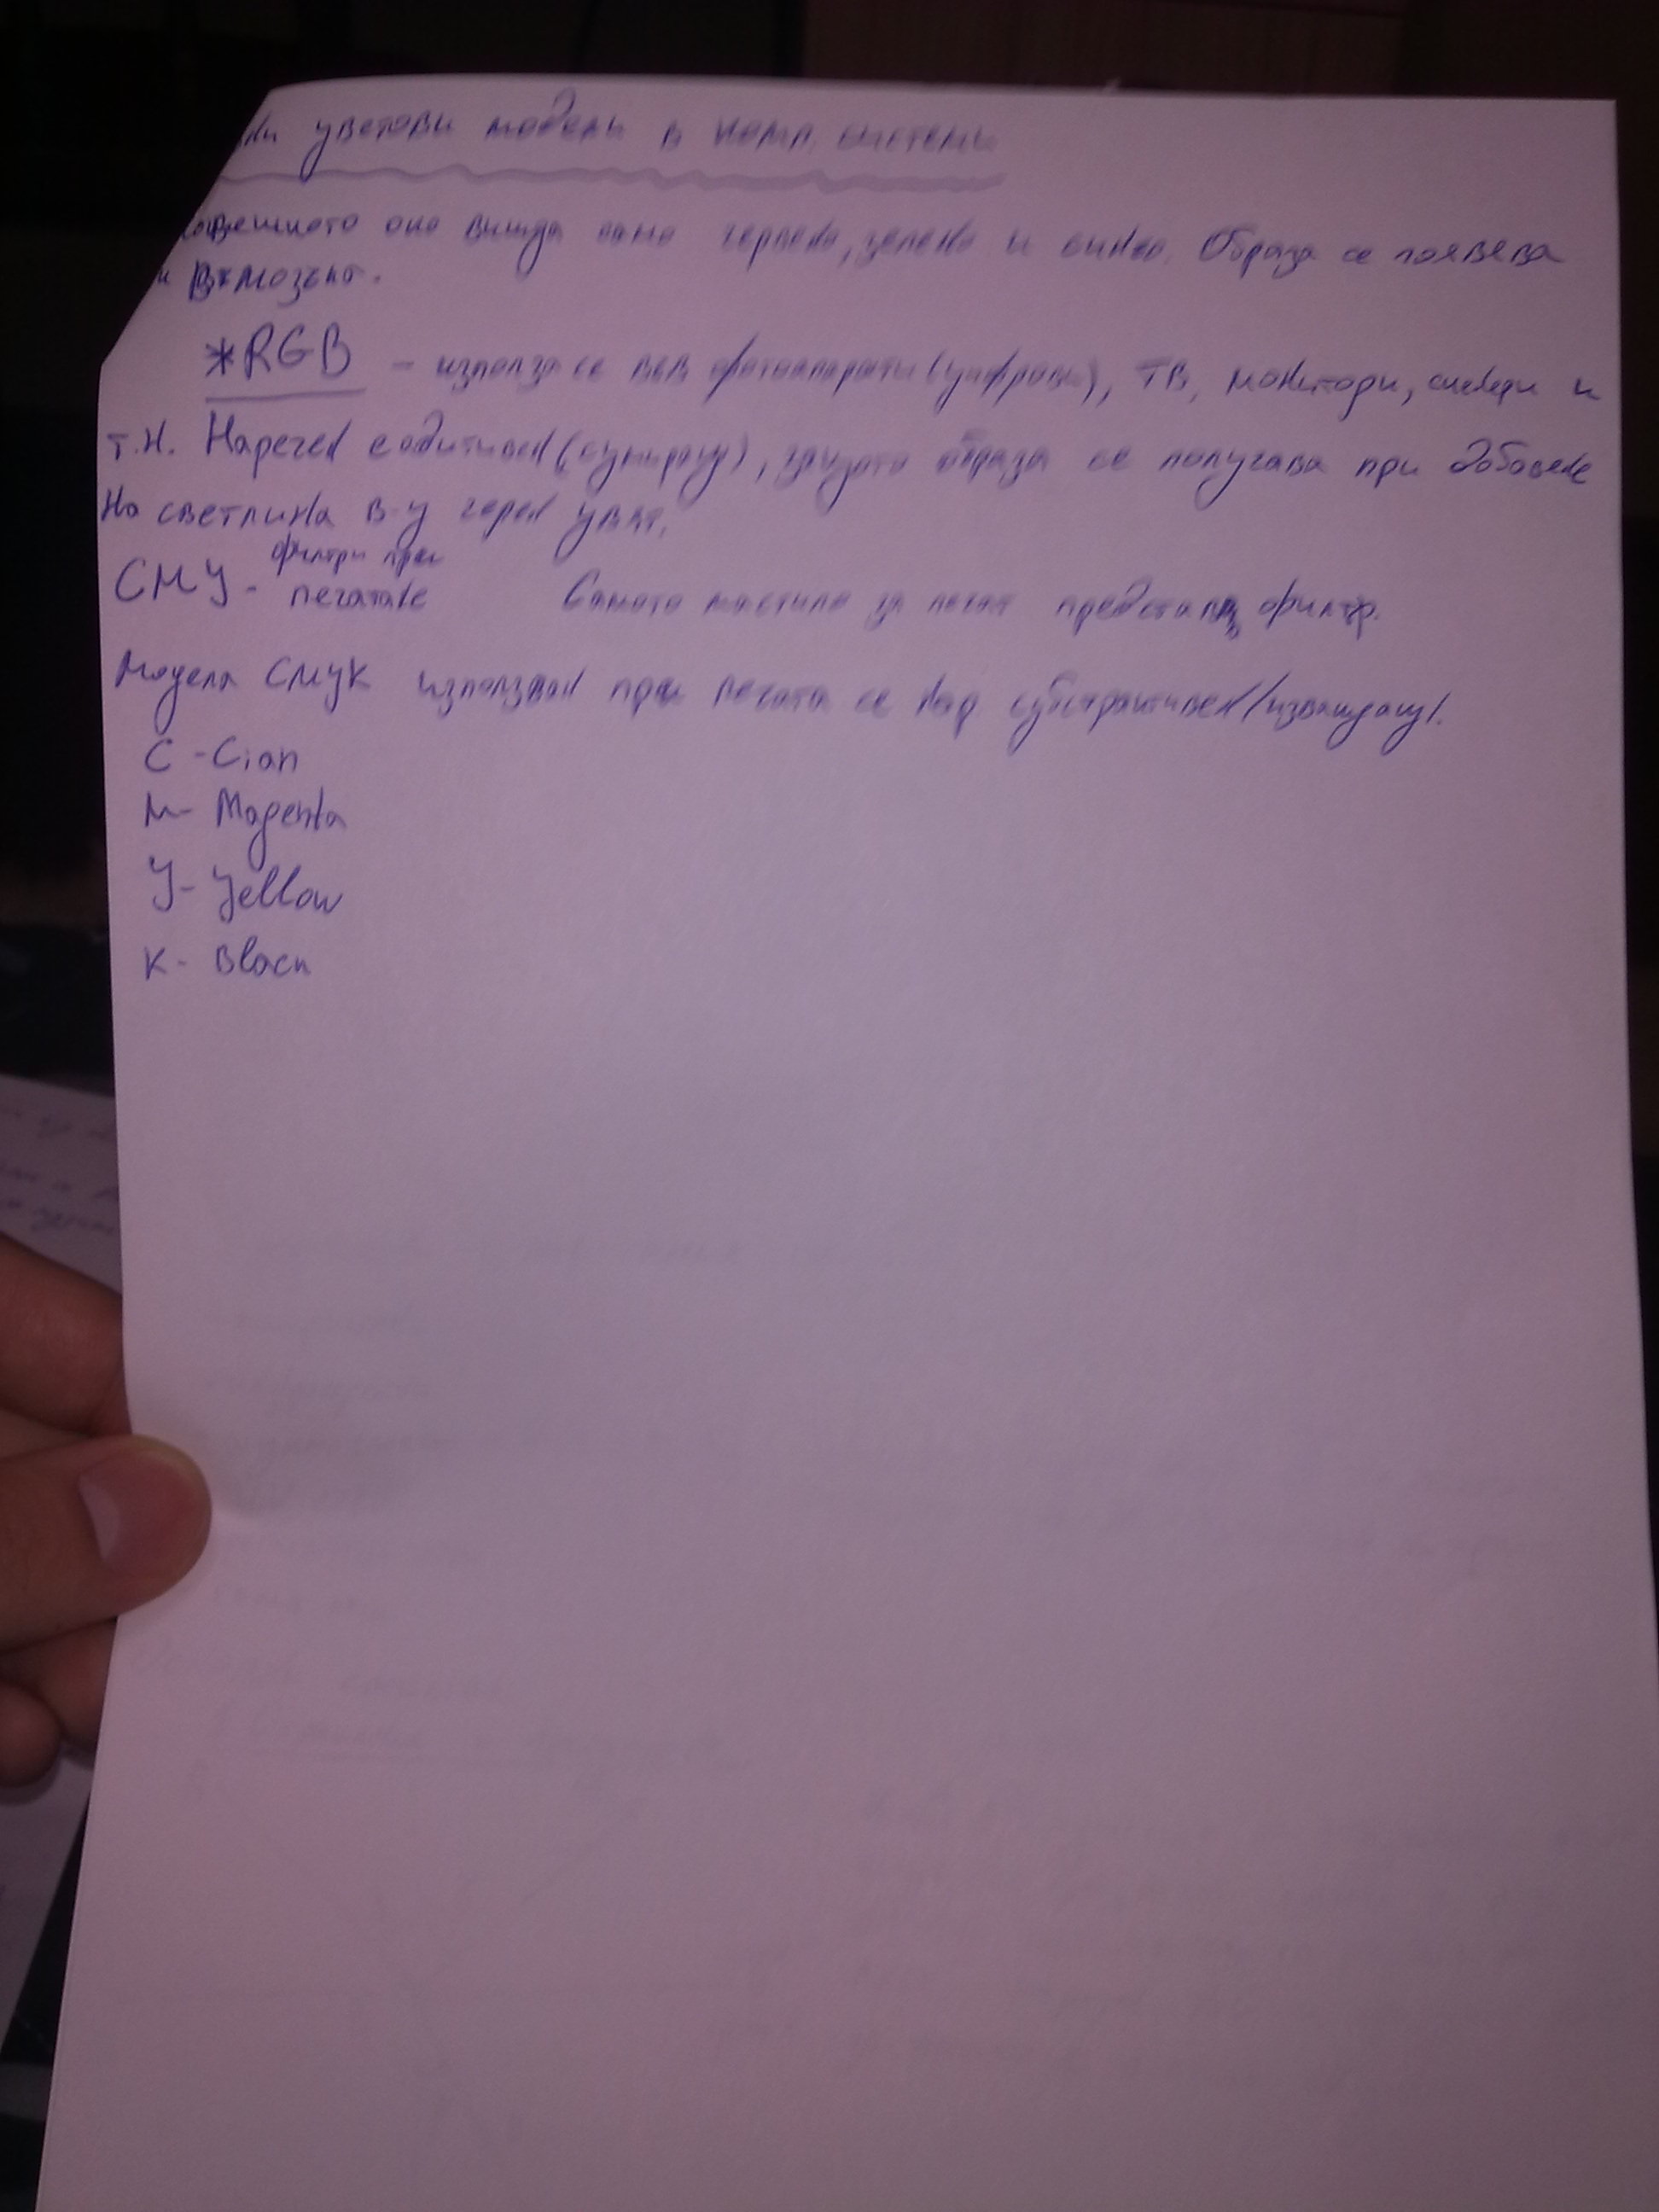 ни цветови модели в комп. системи
човешкото око вижда само червено, зелено и синьо. Образа се появява
и в мозъка.
*RGB - използа се във фотоапарати (цифрови), ТВ, монитори, скенери и
т.н. Наречен е адитивен (сумиращ), защото образа се получава при добавяне
на светлина в-у черен цвят.
филтри при
CMY - печатане Самото мастило за печат представ филтр.
Модела CMYK използван при печата се нар субстрактивен /изваждащ/.
C - Cian
M - Magenta
Y - Yellow
K - Black